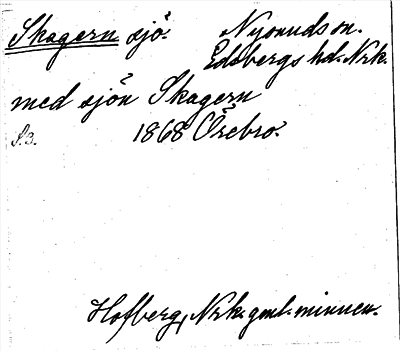 Skagern sjö. Nysunds sn.
Edsbergs hd. Nrk.
med sjön Skagern
S. 3. 1868 Örebro.
Hofberg, Nrk. gml. minnen.